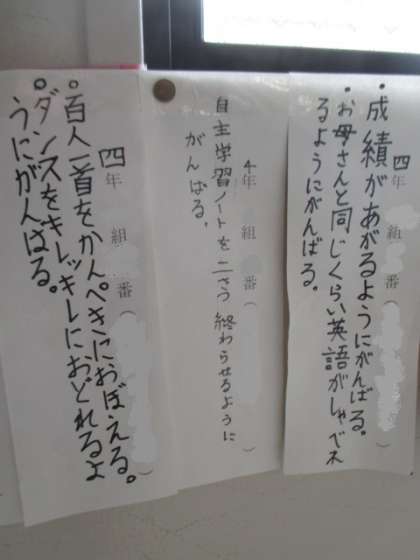 四年 組 番（ ）
・成績があがるようにがんばる。
・お母さんと同じくらい英語がしゃべれ
るようにがんばる。
4年 組 番（ ）
自主学習ノートを二さつ終わらせるように
がんばる。
四年 組 番（ ）
・百人一首をかんぺきにおぼえる。
・ダンスをキレッキレにおどれるよ
うにがんばる。